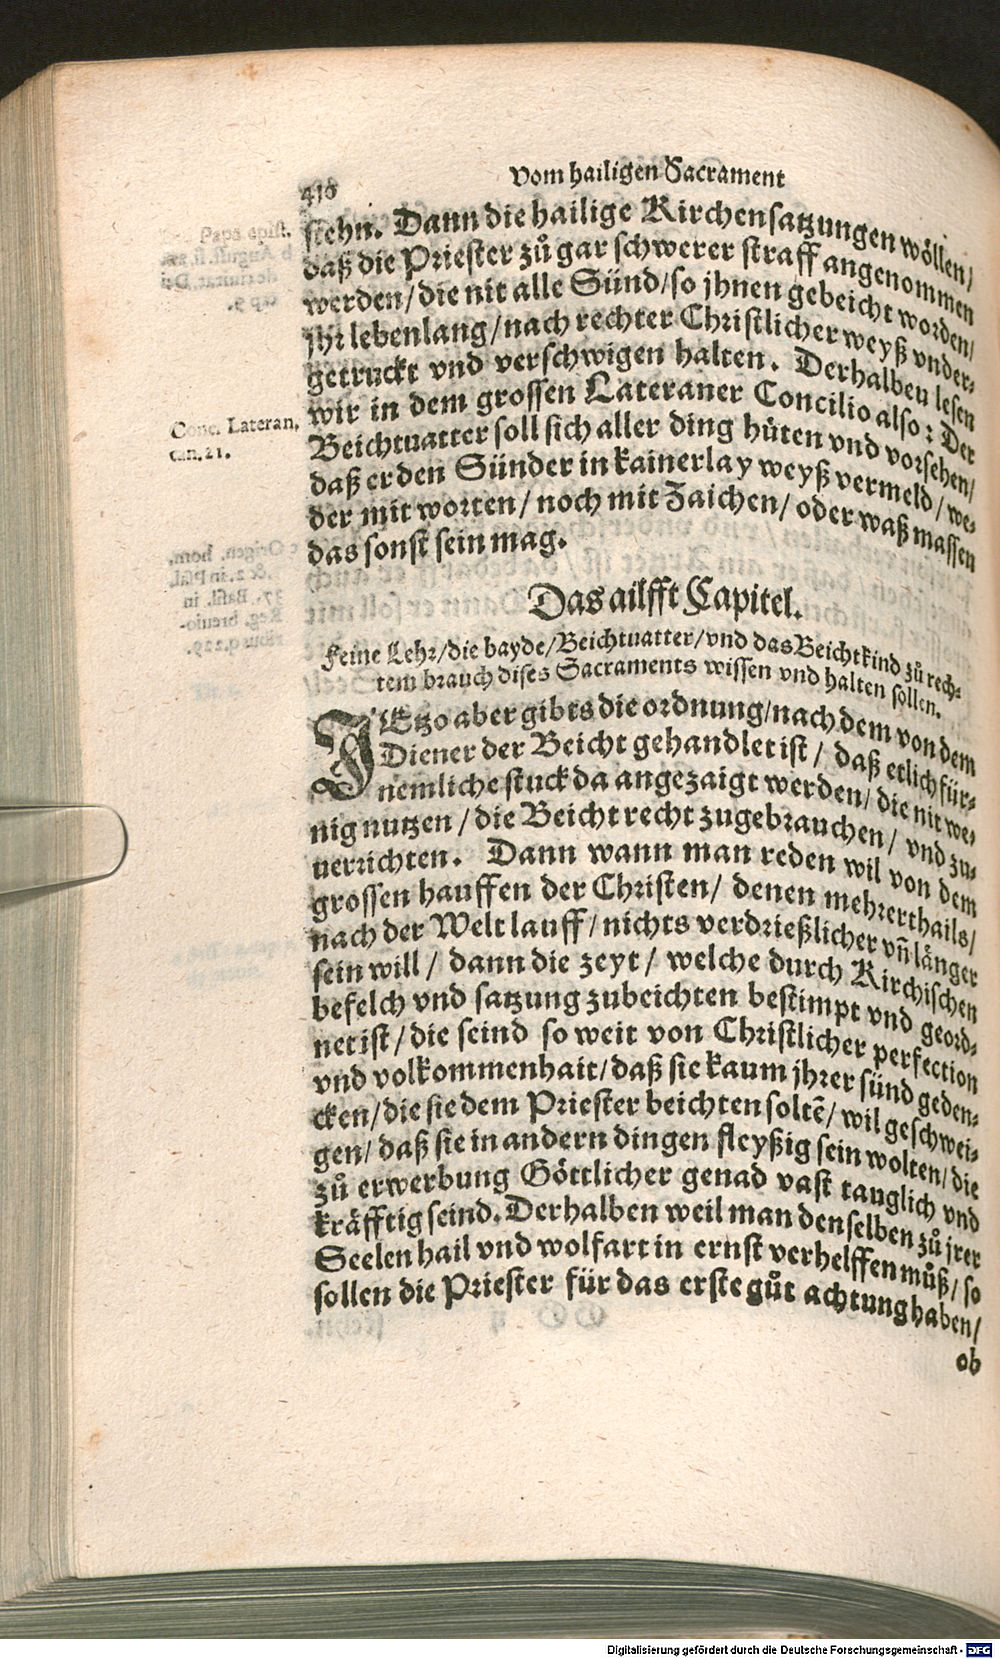 416
Vom hailigen Sacrament
stehn. Dann die hailige Kirchensatzungen wöllen/
daß die Priester zů gar schwerer straff angenommen
werden/die nit alle Sünd/so jhnen gebeicht worden/
jhr lebenlang/nach rechter Christlicher weyß vnder-
getruckt vnd verschwigen halten. Derhalben lesen
wir in dem grossen Lateraner Concilio also: Der
Beichtuatter soll sich aller ding hůten vnd vorsehen/
daß er den Sünder in kainerlay weyß vermeld/we-
der mit worten/noch mit Zaichen/oder waß massen
das sonst sein mag.
Conc. Lateran,
can.21.
Das ailfft Capitel.
Feine Lehr/die bayde/Beichtuatter/vnd das Beichtkind zů rech-
tem brauch dises Sacraments wissen vnd halten sollen.
JEtzo aber gibts die ordnung/nach dem von dem
Diener der Beicht gehandlet ist/ daß etlich für-
nemliche stuck da angezaigt werden/ die nit we-
nig nutzen/die Beicht recht zugebrauchen/ vnd zu-
uerrichten. Dann wann man reden wil von dem
grossen hauffen der Christen/ denen mehrerthails/
nach der Welt lauff/nichts verdrießlicher vñ länger
sein will/ dann die zeyt/ welche durch Kirchischen
befelch vnd satzung zubeichten bestimpt vnd geord-
net ist/die seind so weit von Christlicher perfection
vnd volkommenhait/daß sie kaum jhrer sünd geden-
cken/die sie dem Priester beichten soltē/ wil geschwei-
gen/ daß sie in andern dingen fleyßig sein wolten/die
zů erwerbung Göttlicher genad vast tauglich vnd
kräfftig seind. Derhalben weil man denselben zů jrer
Seelen hail vnd wolfart in ernst verhelffen můß/ so
sollen die Priester für das erste gůt achtung haben/
ob
Digitalisierung gefördert durch die Deutsche Forschungsgemeinschaft - DFG